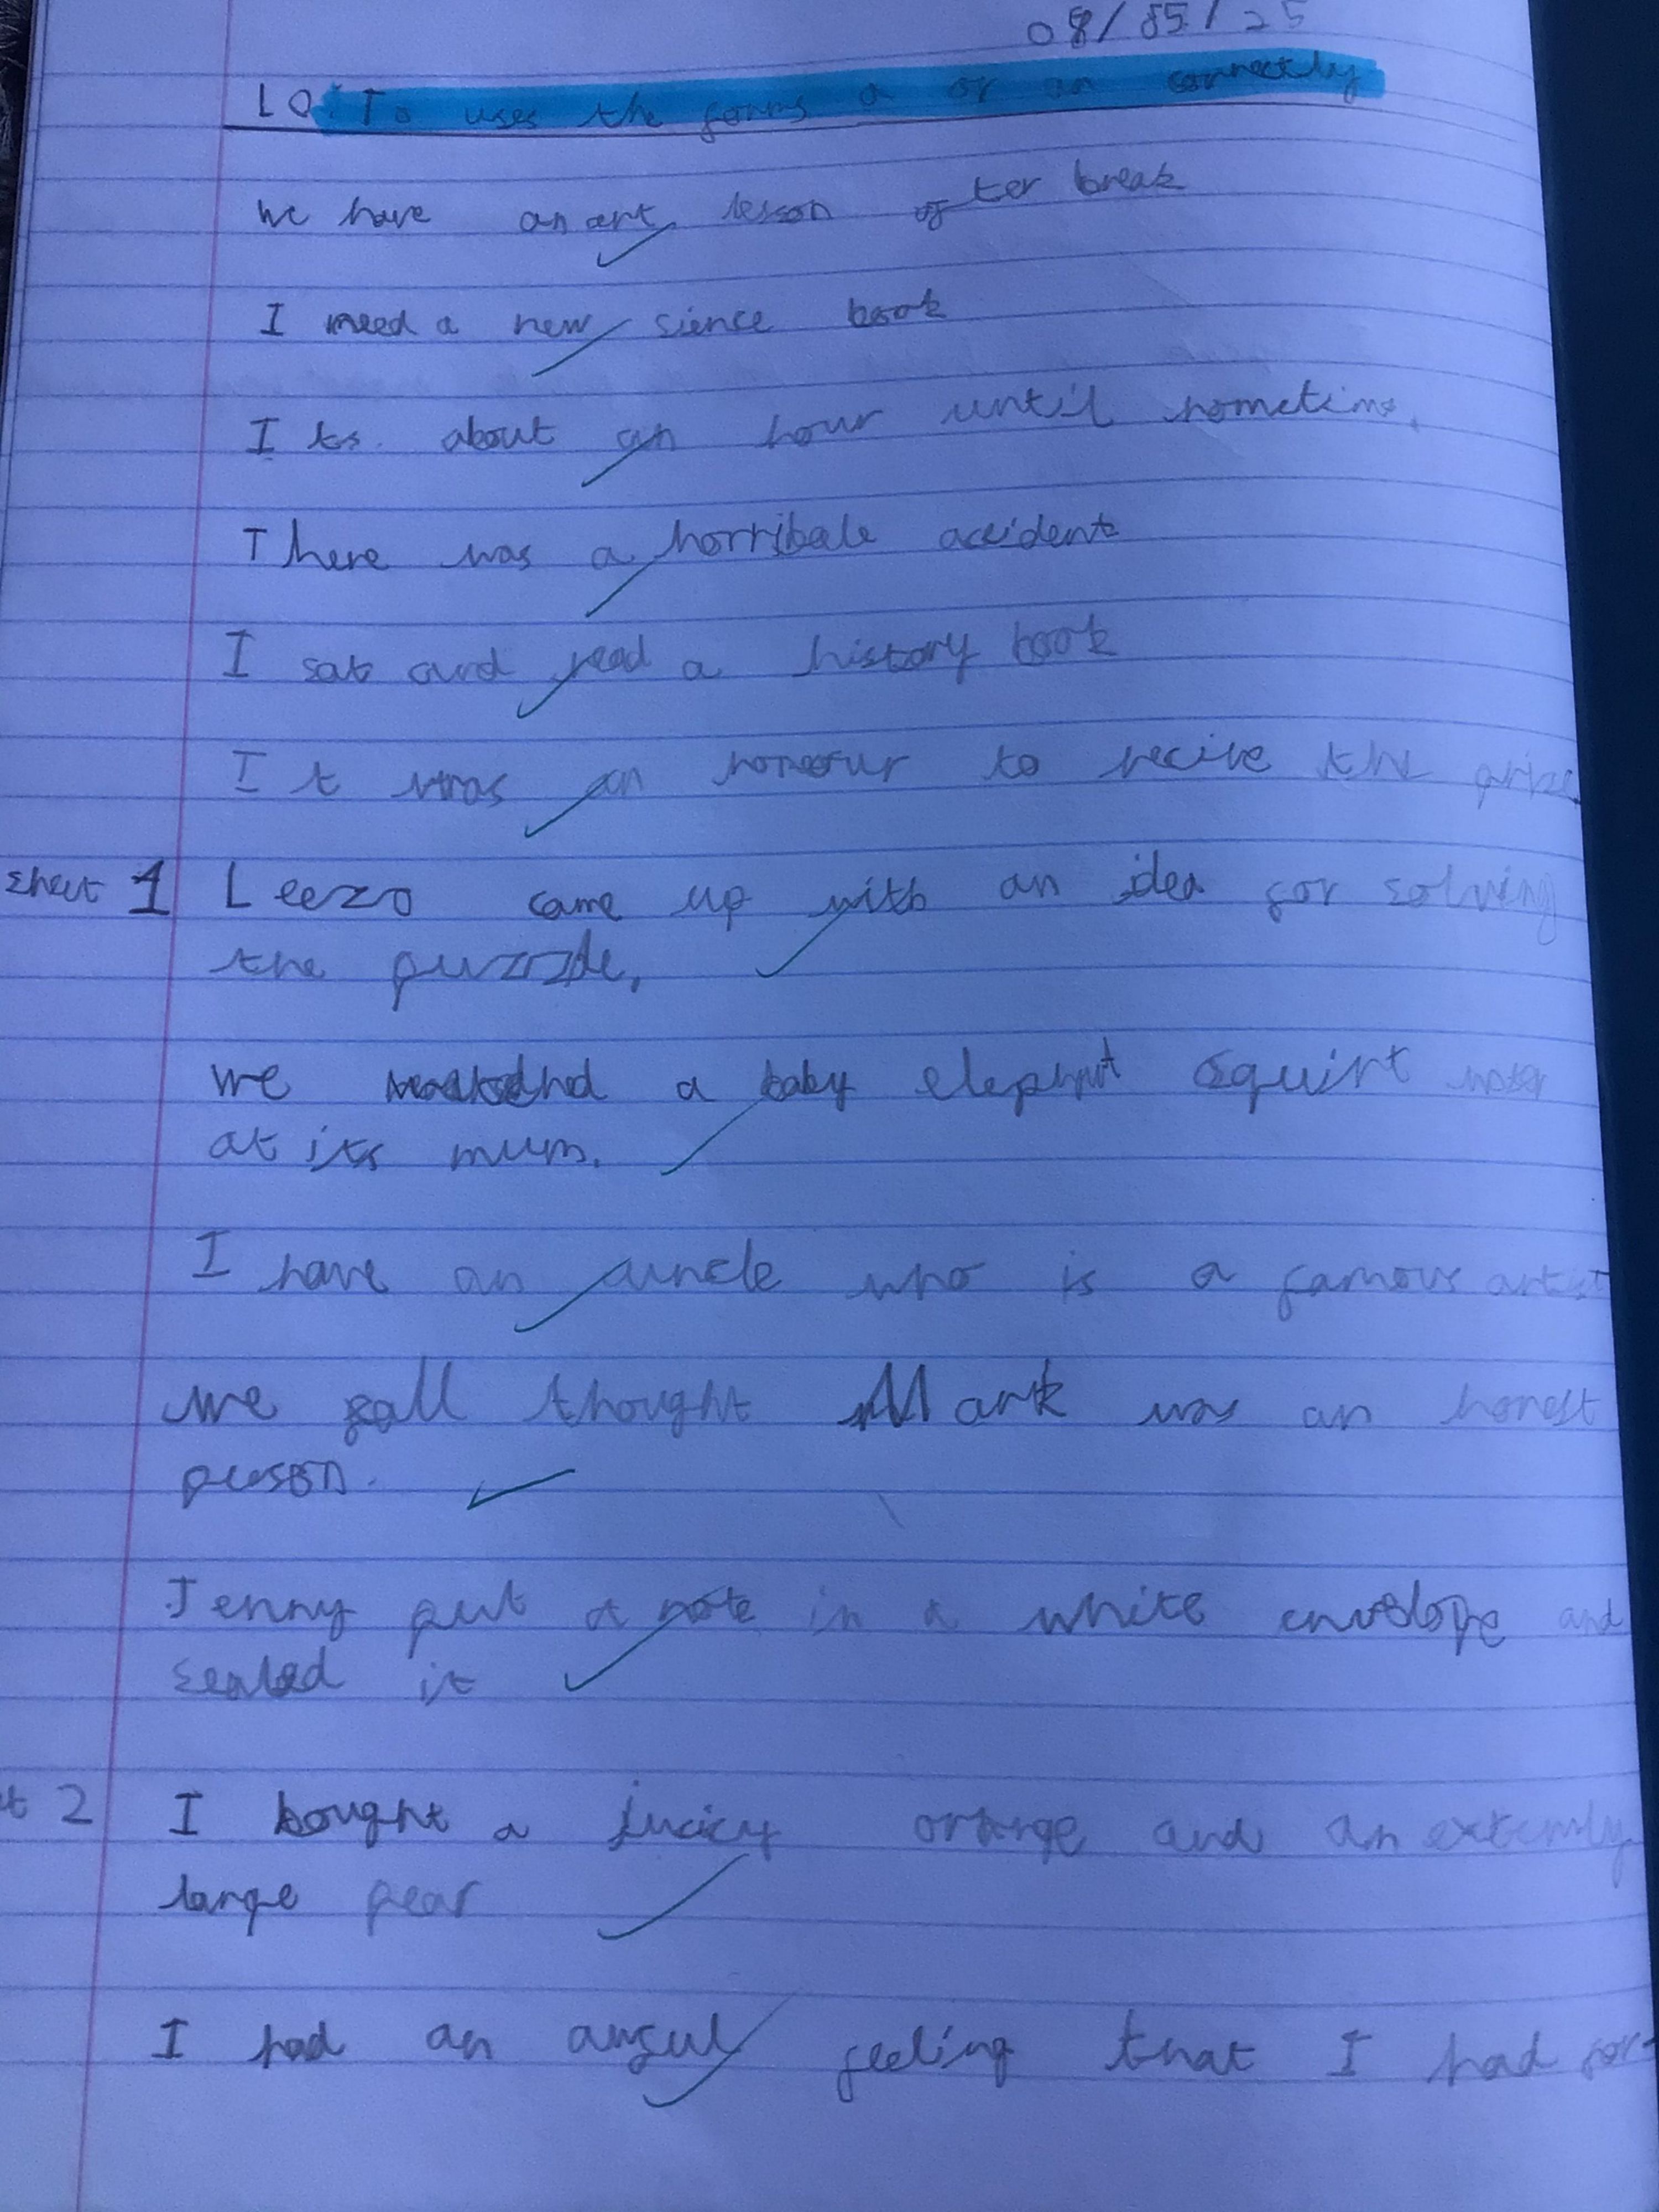 08/05/25
LO: To uses the forms a or an correctly
We have an art lesson after break
I need a new sience book
Its about an hour until hometime.
There was a horribale accident
I sat and read a history book
It was an honour to recive the prize.
Sheet 1 Leezo came up with an idea for solving
the puzzle.
We a baby elephant squirt water
at its mum.
I have an auncle who is a famous artist
we all thought Mark was an honest
person.
Jenny put a note in a white envelope and
sealed it
t 2 I bought a juicy orange and an extemly
large pear
I had an feeling that I had for-